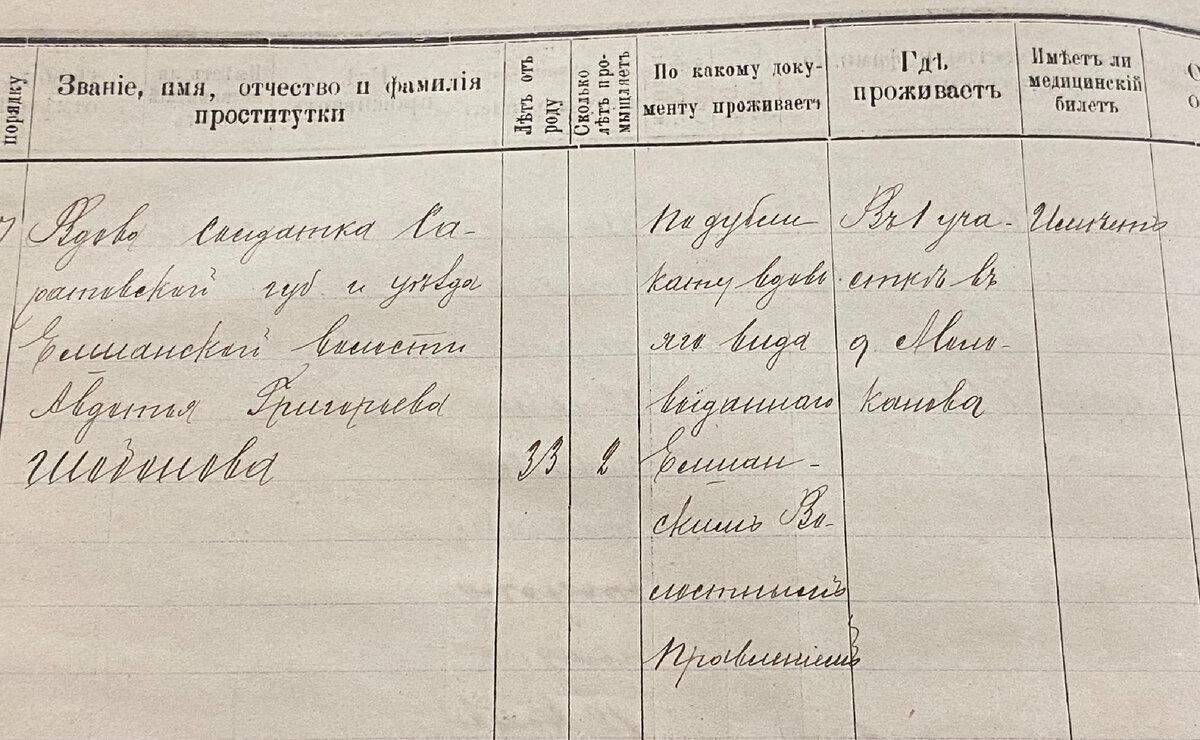 порядку
Званіе, имя, отчество и фамилія
проститутки
Лѣтъ отъ
роду
Сколько
лѣтъ про-
мышляетъ
По какому доку-
менту проживаетъ
Гдѣ
проживаетъ
Имѣетъ ли
медицинскій
билетъ
Вдова солдатка Са-
ратовской губ и уѣзда
Елшанской волости
Авдотья Григорьева
Шабонова
33
2
По дубли
кату вдовь
яго вида
выданнаго
Елшан-
скимъ Во-
лостнымъ
Правленіемъ
Въ 1 уча-
сткѣ въ
д Моло-
канова
Имѣетъ